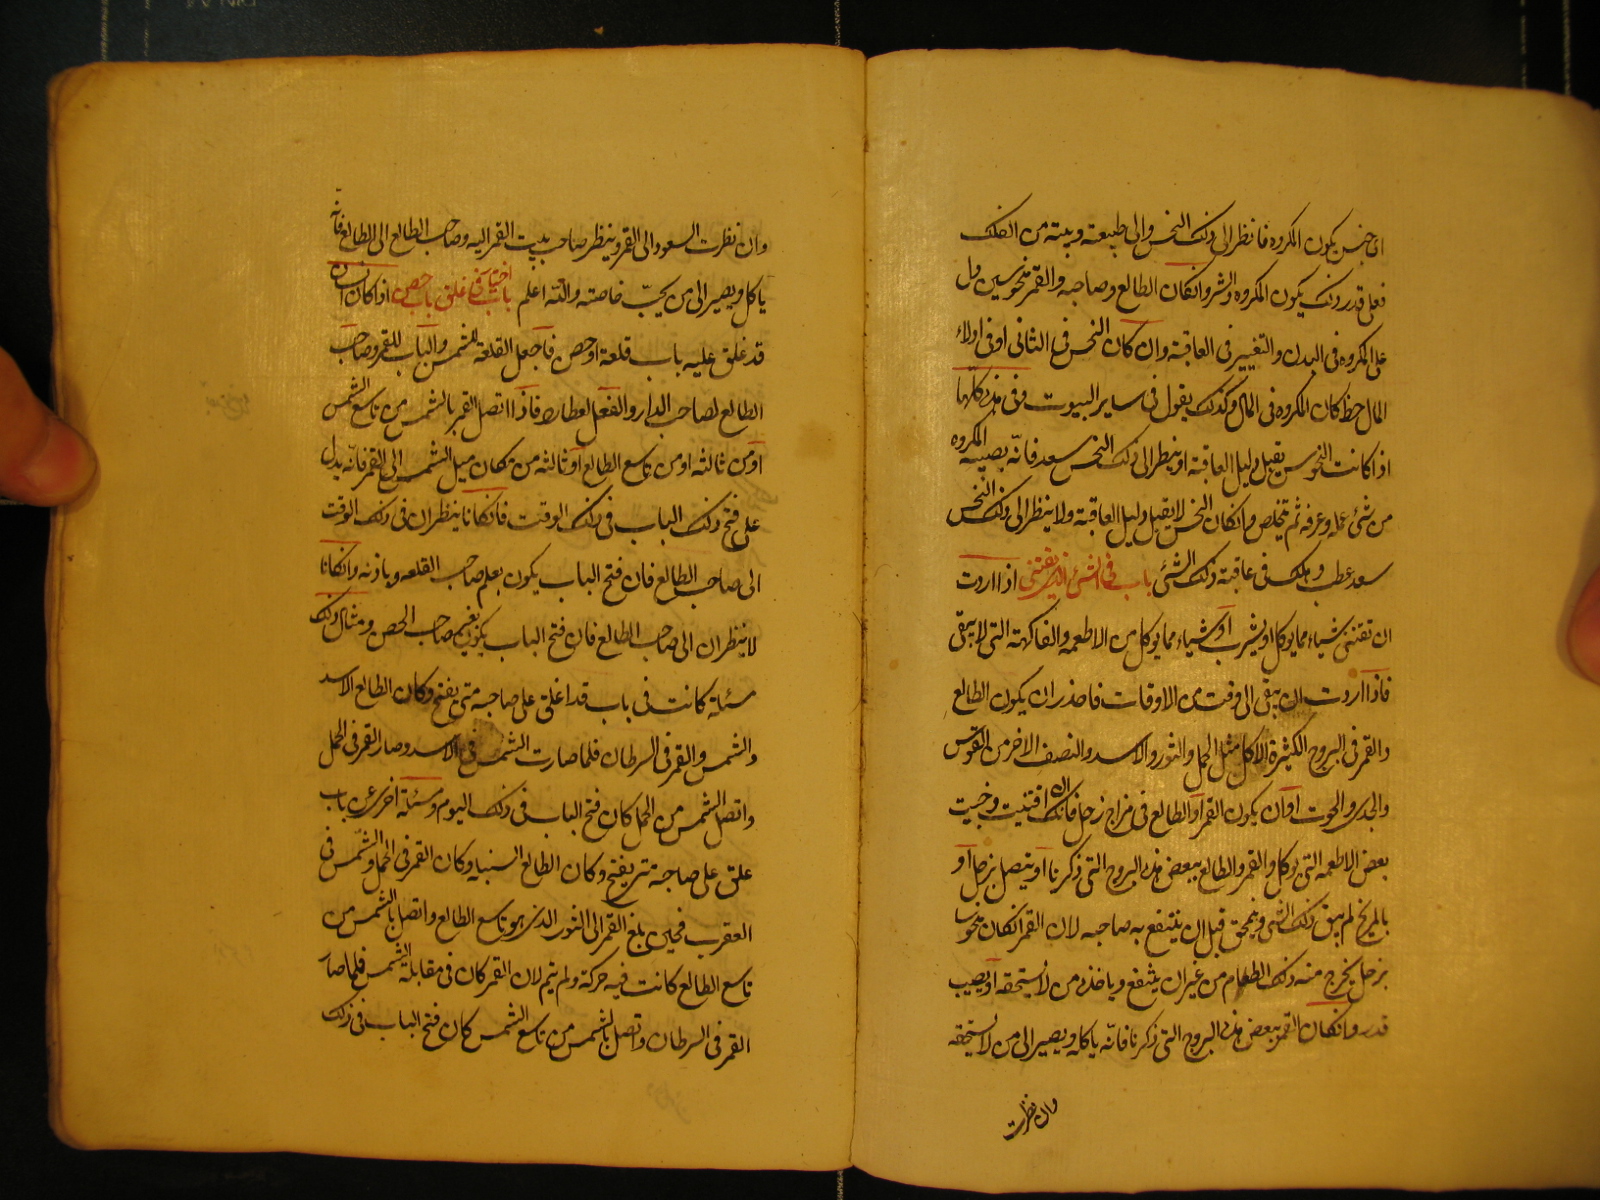 اى جنس يكون المكروه فانظر الى ذلك النحس والى طبيعته وبيته من الفلك
فعلى قدر ذلك يكون المكروه والشر وانكان الطالع وصاحبه والقمر منحوسين دل
على المكروه فى البدن والتغيير فى العاقبة وان كان النحس فى الثانى او فى اولاء
المال حظ كان المكروه فى المال وكذلك يقول فى ساير البيوت وفى هذه كلها
اذا كانت النحوس يقبل دليل العاقبة او ينظر الى ذلك النحس سعد فانّه يصيبه المكروه
من شئ عمله وعرفه ثم يتخلص وانكان النحس لا يقبل دليل العاقبة ولا ينظر الى ذلك النحس
سعد عطب وهلك فى عاقبة ذلك الشئ باب فى الشئ الذى يقتنى اذا اردت
ان تقتنى شياء مما يوكل او يشرب او شياء مما يوكل من الاطعمه والفاكهة التى لا يبقى
فاذا اردت ان يبقى الى وقت من الاوقات فاحذر ان يكون الطالع
والقمر فى البروج الكثيرة الاكل مثل الحمل والثور والاسد والنصف الاخر من القوس
والجدى والحوت او ان يكون القمر او الطالع فى مزاج زحل فانك ان اقتنيت وخبيت
بعض الاطعمه التى يوكل والقمر والطالع ببعض هذه البروج التى ذكرنا او يتصل بزحل او
بالمريخ لم يبق ذلك الشئ ويمحق قبل ان ينتفع به صاحبه لان القمر انكان منحوسا
بزحل يخرج منه ذلك الطعام من غير ان ينتفع وياخذه من لا يستحقه او يصيب
قدر وانكان القمر ببعض هذه البروج التى ذكرنا فانّه ياكله ويصير الى من لا يستحقه
وان نظرت
وان نظرت السعود الى القمر وينظر صاحب بيت القمر اليه وصاحب الطالع الى الطالع فانه
ياكل ويصير الى من يحبّ خاصته والله اعلم باب اختيار فى غلق باب حصن اذا كان انسان
قد غلق عليه باب قلعة او حصن فاجعل القلعة للشمس والباب للقمر وصاحب
الطالع لصاحب الدار والفعل لعطارد فاذا اتصل القمر بالشمس من تاسع الشمس
او من ثالثه او من تاسع الطالع او ثالثه من مكان ميل الشمس الى القمر فانّه يدل
على فتح ذلك الباب فى ذلك الوقت فانكانا ينظران فى ذلك الوقت
الى صاحب الطالع فان فتح الباب يكون بعلم صاحب القلعه وباذنه وانكانا
لا ينظران الى صاحب الطالع فان فتح الباب يكون بغير صاحب الحصن ومثال ذلك
مسئلة كانت فى باب قد اغلق على صاحبه متى يفتح وكان الطالع الاسد
والشمس والقمر فى السرطان فلما صارت الشمس فى الاسد وصار القمر فى الحمل
واتصل الشمس من الحمل كان فتح الباب فى ذلك اليوم ومسئلة اخرى عن باب
غلق على صاحبه متى يفتح وكان الطالع السنبله وكان القمر فى الحمل والشمس فى
العقرب فحين بلغ القمر الى الثور الذى هو تاسع الطالع واتصل بالشمس من
تاسع الطالع كانت فيه حركة ولم يتم لان القمر كان فى مقابلة الشمس فلما صار
القمر فى السرطان واتصل بالشمس من تاسع الشمس كان فتح الباب فى ذلك